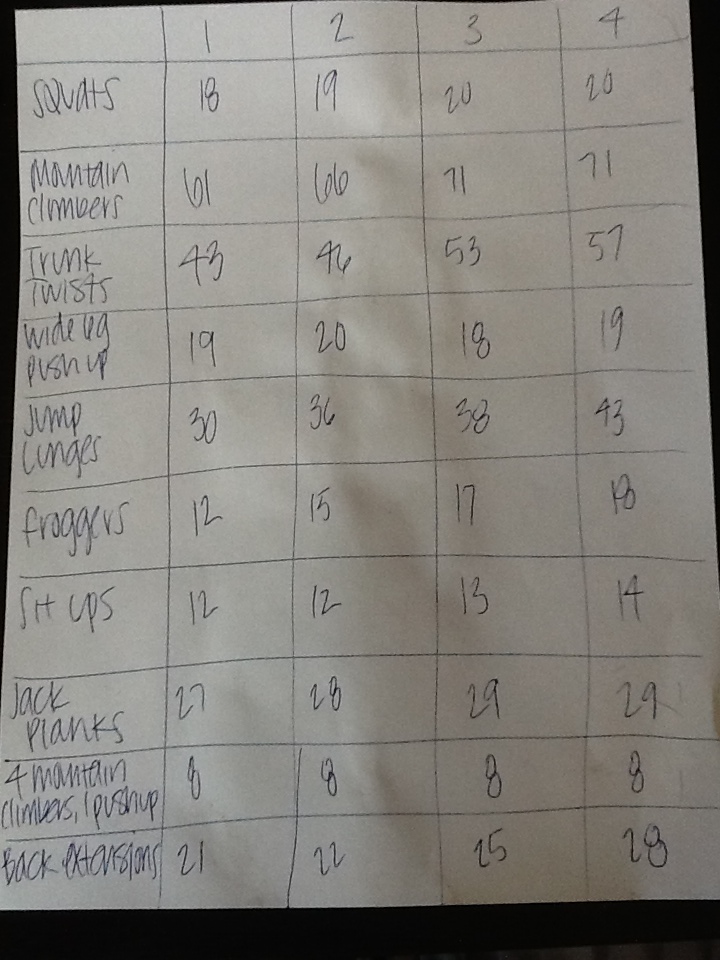 1 2 3 4
squats 18 19 20 20
Mountain
climbers 61 66 71 71
Trunk
Twists 43 46 53 57
wide leg
push up 19 20 18 19
Jump
Lunges 30 36 38 43
froggers 12 15 17 18
sit ups 12 12 13 14
Jack
planks 27 28 29 29
4 mountain
climbers, 1 pushup 8 8 8 8
Back extensions 21 22 25 28